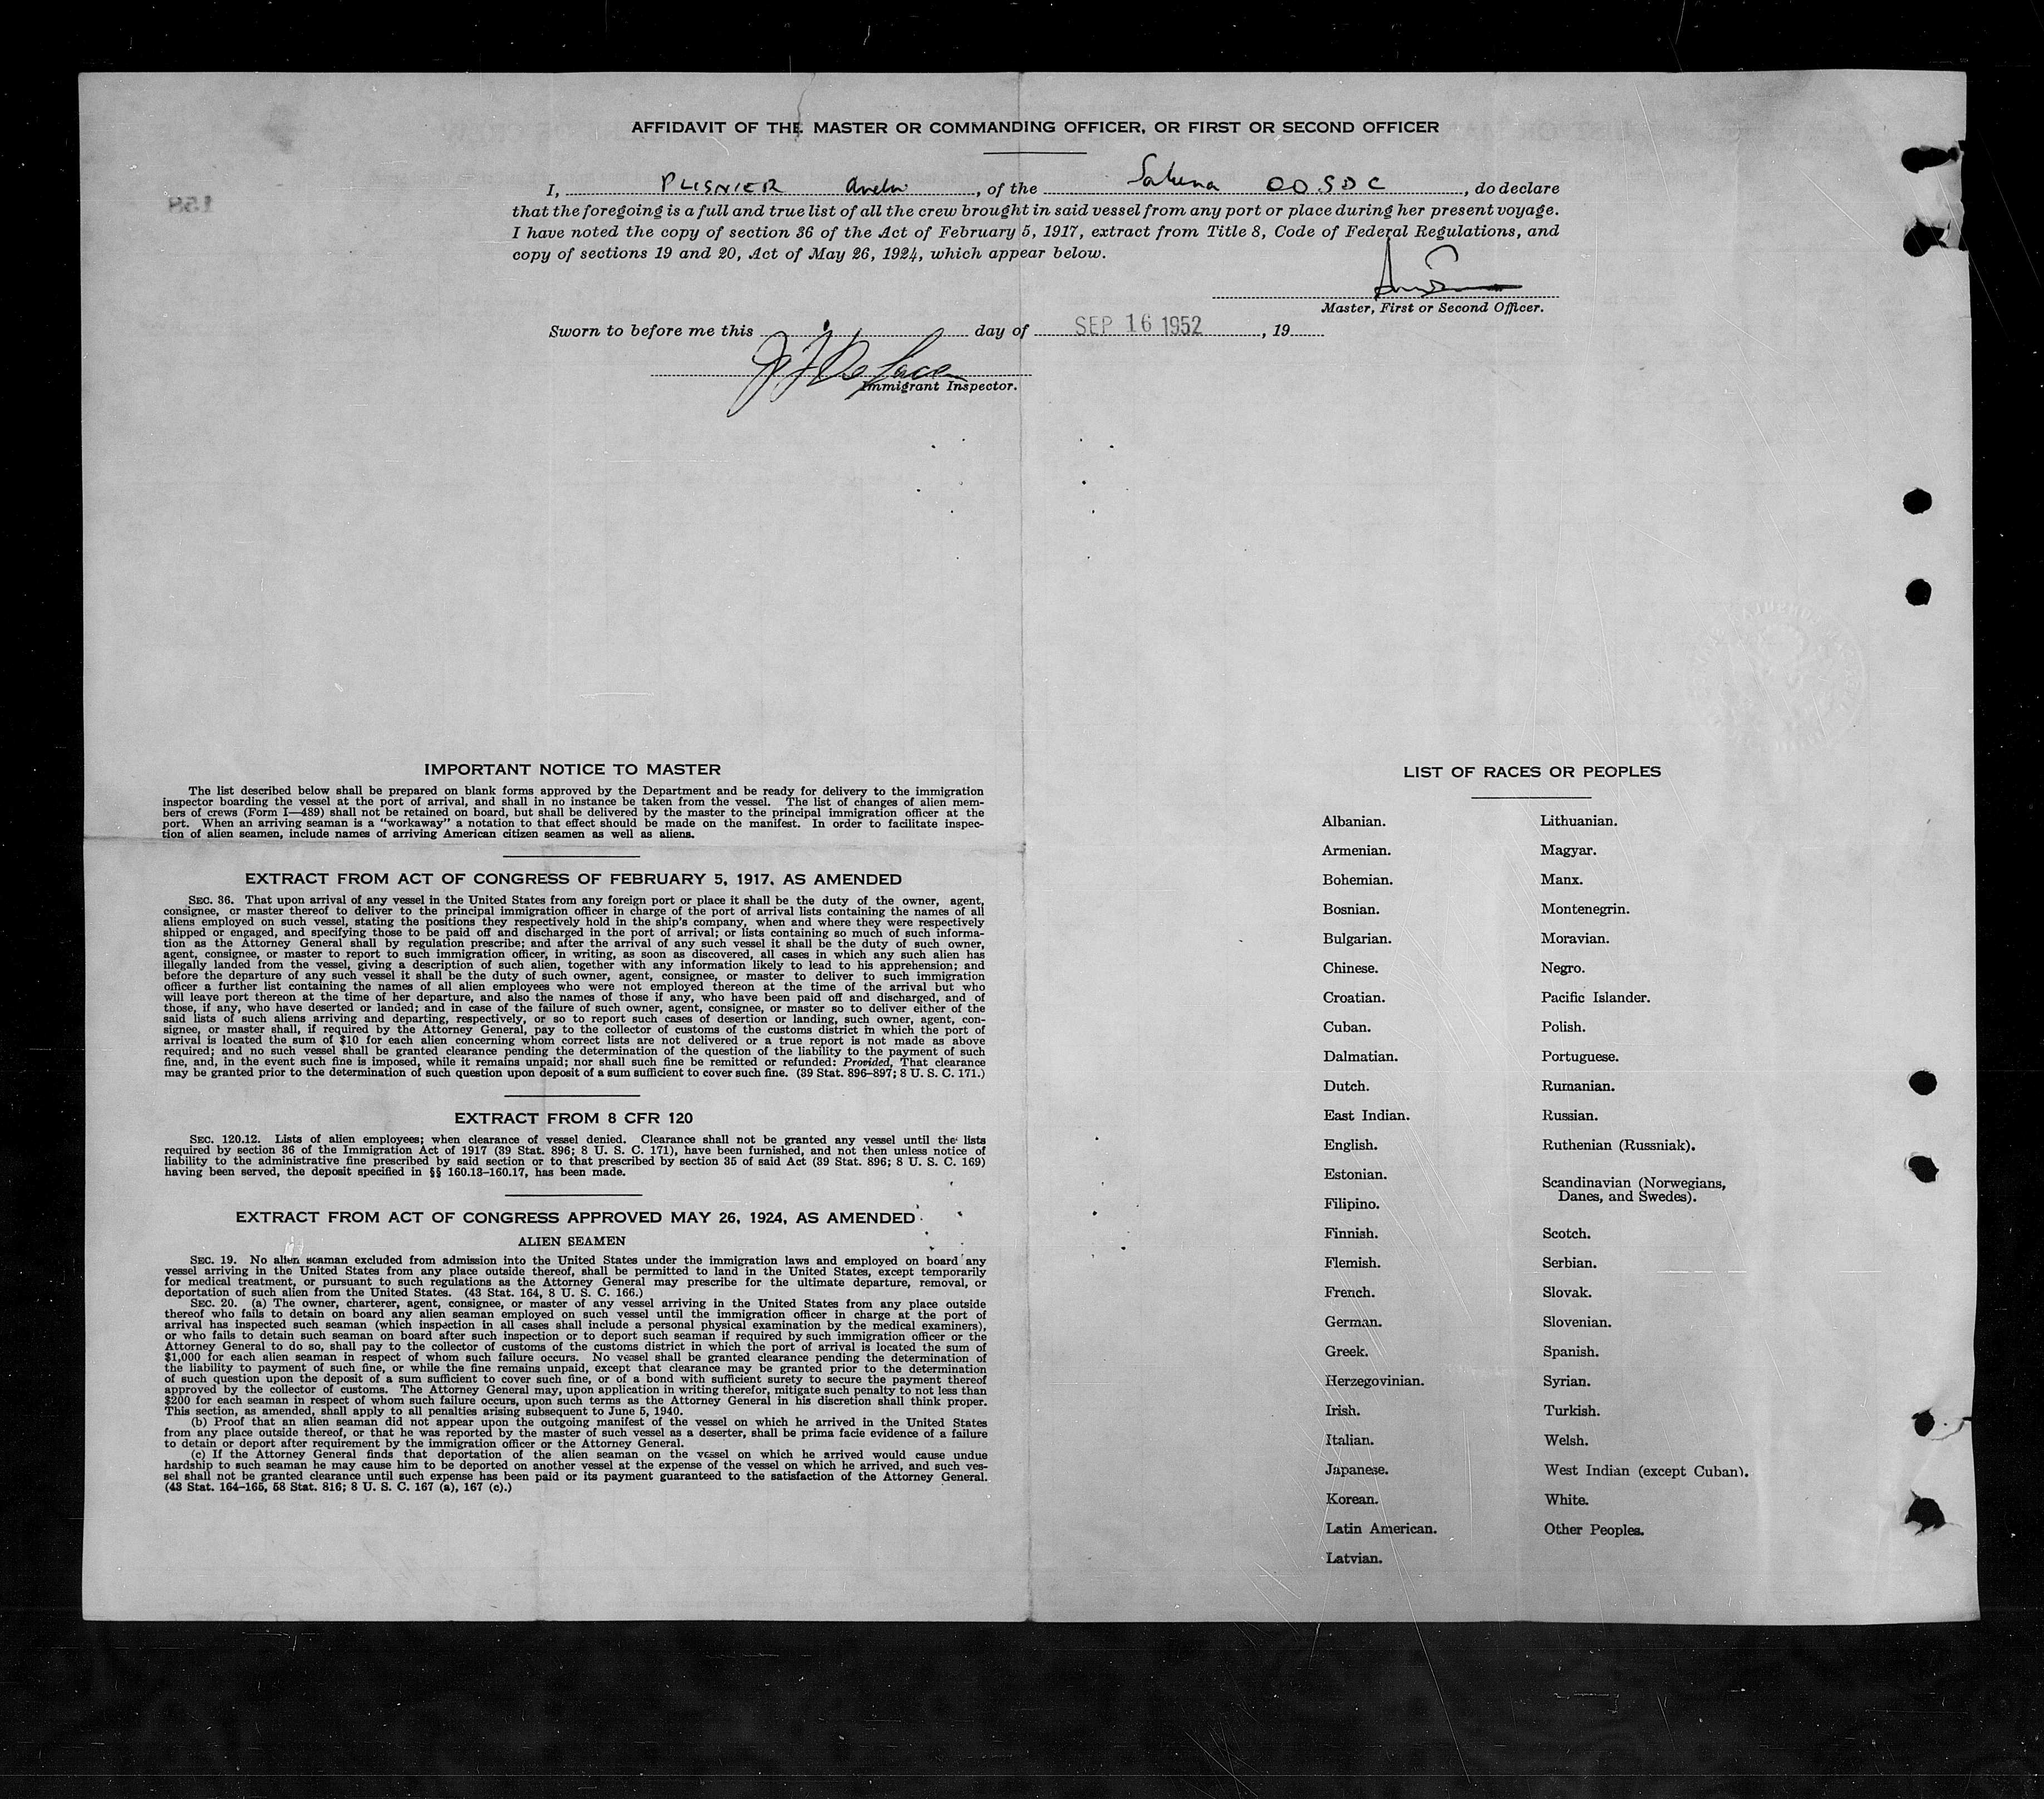 AFFIDAVIT OF THE MASTER OR COMMANDING OFFICER, OR FIRST OR SECOND OFFICER
I, PLISNIER, of the Sabena OO.SDC, do declare
that the foregoing is a full and true list of all the crew brought in said vessel from any port or place during her present voyage.
I have noted the copy of section 36 of the Act of February 5, 1917, extract from Title 8, Code of Federal Regulations, and
copy of sections 19 and 20, Act of May 26, 1924, which appear below.
Master, First or Second Officer.
Sworn to before me this day of SEP 16 1952, 19
Immigrant Inspector.
IMPORTANT NOTICE TO MASTER
The list described below shall be prepared on blank forms approved by the Department and be ready for delivery to the immigration
inspector boarding the vessel at the port of arrival, and shall in no instance be taken from the vessel. The list of changes of alien mem-
bers of crews (Form I—489) shall not be retained on board, but shall be delivered by the master to the principal immigration officer at the
port. When an arriving seaman is a "workaway" a notation to that effect should be made on the manifest. In order to facilitate inspec-
tion of alien seamen, include names of arriving American citizen seamen as well as aliens.
EXTRACT FROM ACT OF CONGRESS OF FEBRUARY 5, 1917, AS AMENDED
SEC. 36. That upon arrival of any vessel in the United States from any foreign port or place it shall be the duty of the owner, agent,
consignee, or master thereof to deliver to the principal immigration officer in charge of the port of arrival lists containing the names of all
aliens employed on such vessel, stating the positions they respectively hold in the ship's company, when and where they were respectively
shipped or engaged, and specifying those to be paid off and discharged in the port of arrival; or lists containing so much of such informa-
tion as the Attorney General shall by regulation prescribe; and after the arrival of any such vessel it shall be the duty of such owner,
agent, consignee, or master to report to such immigration officer, in writing, as soon as discovered, all cases in which any such alien has
illegally landed from the vessel, giving a description of such alien, together with any information likely to lead to his apprehension; and
before the departure of any such vessel it shall be the duty of such owner, agent, consignee, or master to deliver to such immigration
officer a further list containing the names of all alien employees who were not employed thereon at the time of the arrival but who
will leave port thereon at the time of her departure, and also the names of those if any, who have been paid off and discharged, and of
those, if any, who have deserted or landed; and in case of the failure of such owner, agent, consignee, or master so to deliver either of the
said lists of such aliens arriving and departing, respectively, or so to report such cases of desertion or landing, such owner, agent, con-
signee, or master shall, if required by the Attorney General, pay to the collector of customs of the customs district in which the port of
arrival is located the sum of $10 for each alien concerning whom correct lists are not delivered or a true report is not made as above
required; and no such vessel shall be granted clearance pending the determination of the question of the liability to the payment of such
fine, and, in the event such fine is imposed, while it remains unpaid; nor shall such fine be remitted or refunded: Provided, That clearance
may be granted prior to the determination of such question upon deposit of a sum sufficient to cover such fine. (39 Stat. 896–897; 8 U. S. C. 171.)
EXTRACT FROM 8 CFR 120
SEC. 120.12. Lists of alien employees; when clearance of vessel denied. Clearance shall not be granted any vessel until the lists
required by section 36 of the Immigration Act of 1917 (39 Stat. 896; 8 U. S. C. 171), have been furnished, and not then unless notice of
liability to the administrative fine prescribed by said section or to that prescribed by section 35 of said Act (39 Stat. 896; 8 U. S. C. 169)
having been served, the deposit specified in §§ 160.13–160.17, has been made.
EXTRACT FROM ACT OF CONGRESS APPROVED MAY 26, 1924, AS AMENDED
ALIEN SEAMEN
SEC. 19. No alien seaman excluded from admission into the United States under the immigration laws and employed on board any
vessel arriving in the United States from any place outside thereof, shall be permitted to land in the United States, except temporarily
for medical treatment, or pursuant to such regulations as the Attorney General may prescribe for the ultimate departure, removal, or
deportation of such alien from the United States. (43 Stat. 164, 8 U. S. C. 166.)
SEC. 20. (a) The owner, charterer, agent, consignee, or master of any vessel arriving in the United States from any place outside
thereof who fails to detain on board any alien seaman employed on such vessel until the immigration officer in charge at the port of
arrival has inspected such seaman (which inspection in all cases shall include a personal physical examination by the medical examiners),
or who fails to detain such seaman on board after such inspection or to deport such seaman if required by such immigration officer or the
Attorney General to do so, shall pay to the collector of customs of the customs district in which the port of arrival is located the sum of
$1,000 for each alien seaman in respect of whom such failure occurs. No vessel shall be granted clearance pending the determination of
the liability to payment of such fine, or while the fine remains unpaid, except that clearance may be granted prior to the determination
of such question upon the deposit of a sum sufficient to cover such fine, or of a bond with sufficient surety to secure the payment thereof
approved by the collector of customs. The Attorney General may, upon application in writing therefor, mitigate such penalty to not less than
$200 for each seaman in respect of whom such failure occurs, upon such terms as the Attorney General in his discretion shall think proper.
This section, as amended, shall apply to all penalties arising subsequent to June 5, 1940.
(b) Proof that an alien seaman did not appear upon the outgoing manifest of the vessel on which he arrived in the United States
from any place outside thereof, or that he was reported by the master of such vessel as a deserter, shall be prima facie evidence of a failure
to detain or deport after requirement by the immigration officer or the Attorney General.
(c) If the Attorney General finds that deportation of the alien seaman on the vessel on which he arrived would cause undue
hardship to such seaman he may cause him to be deported on another vessel at the expense of the vessel on which he arrived, and such ves-
sel shall not be granted clearance until such expense has been paid or its payment guaranteed to the satisfaction of the Attorney General.
(43 Stat. 164–165, 58 Stat. 816; 8 U. S. C. 167 (a), 167 (c).)
LIST OF RACES OR PEOPLES
Albanian.
Armenian.
Bohemian.
Bosnian.
Bulgarian.
Chinese.
Croatian.
Cuban.
Dalmatian.
Dutch.
East Indian.
English.
Estonian.
Filipino.
Finnish.
Flemish.
French.
German.
Greek.
Herzegovinian.
Irish.
Italian.
Japanese.
Korean.
Latin American.
Latvian.
Lithuanian.
Magyar.
Manx.
Montenegrin.
Moravian.
Negro.
Pacific Islander.
Polish.
Portuguese.
Rumanian.
Russian.
Ruthenian (Russniak).
Scandinavian (Norwegians,
Danes, and Swedes).
Scotch.
Serbian.
Slovak.
Slovenian.
Spanish.
Syrian.
Turkish.
Welsh.
West Indian (except Cuban).
White.
Other Peoples.